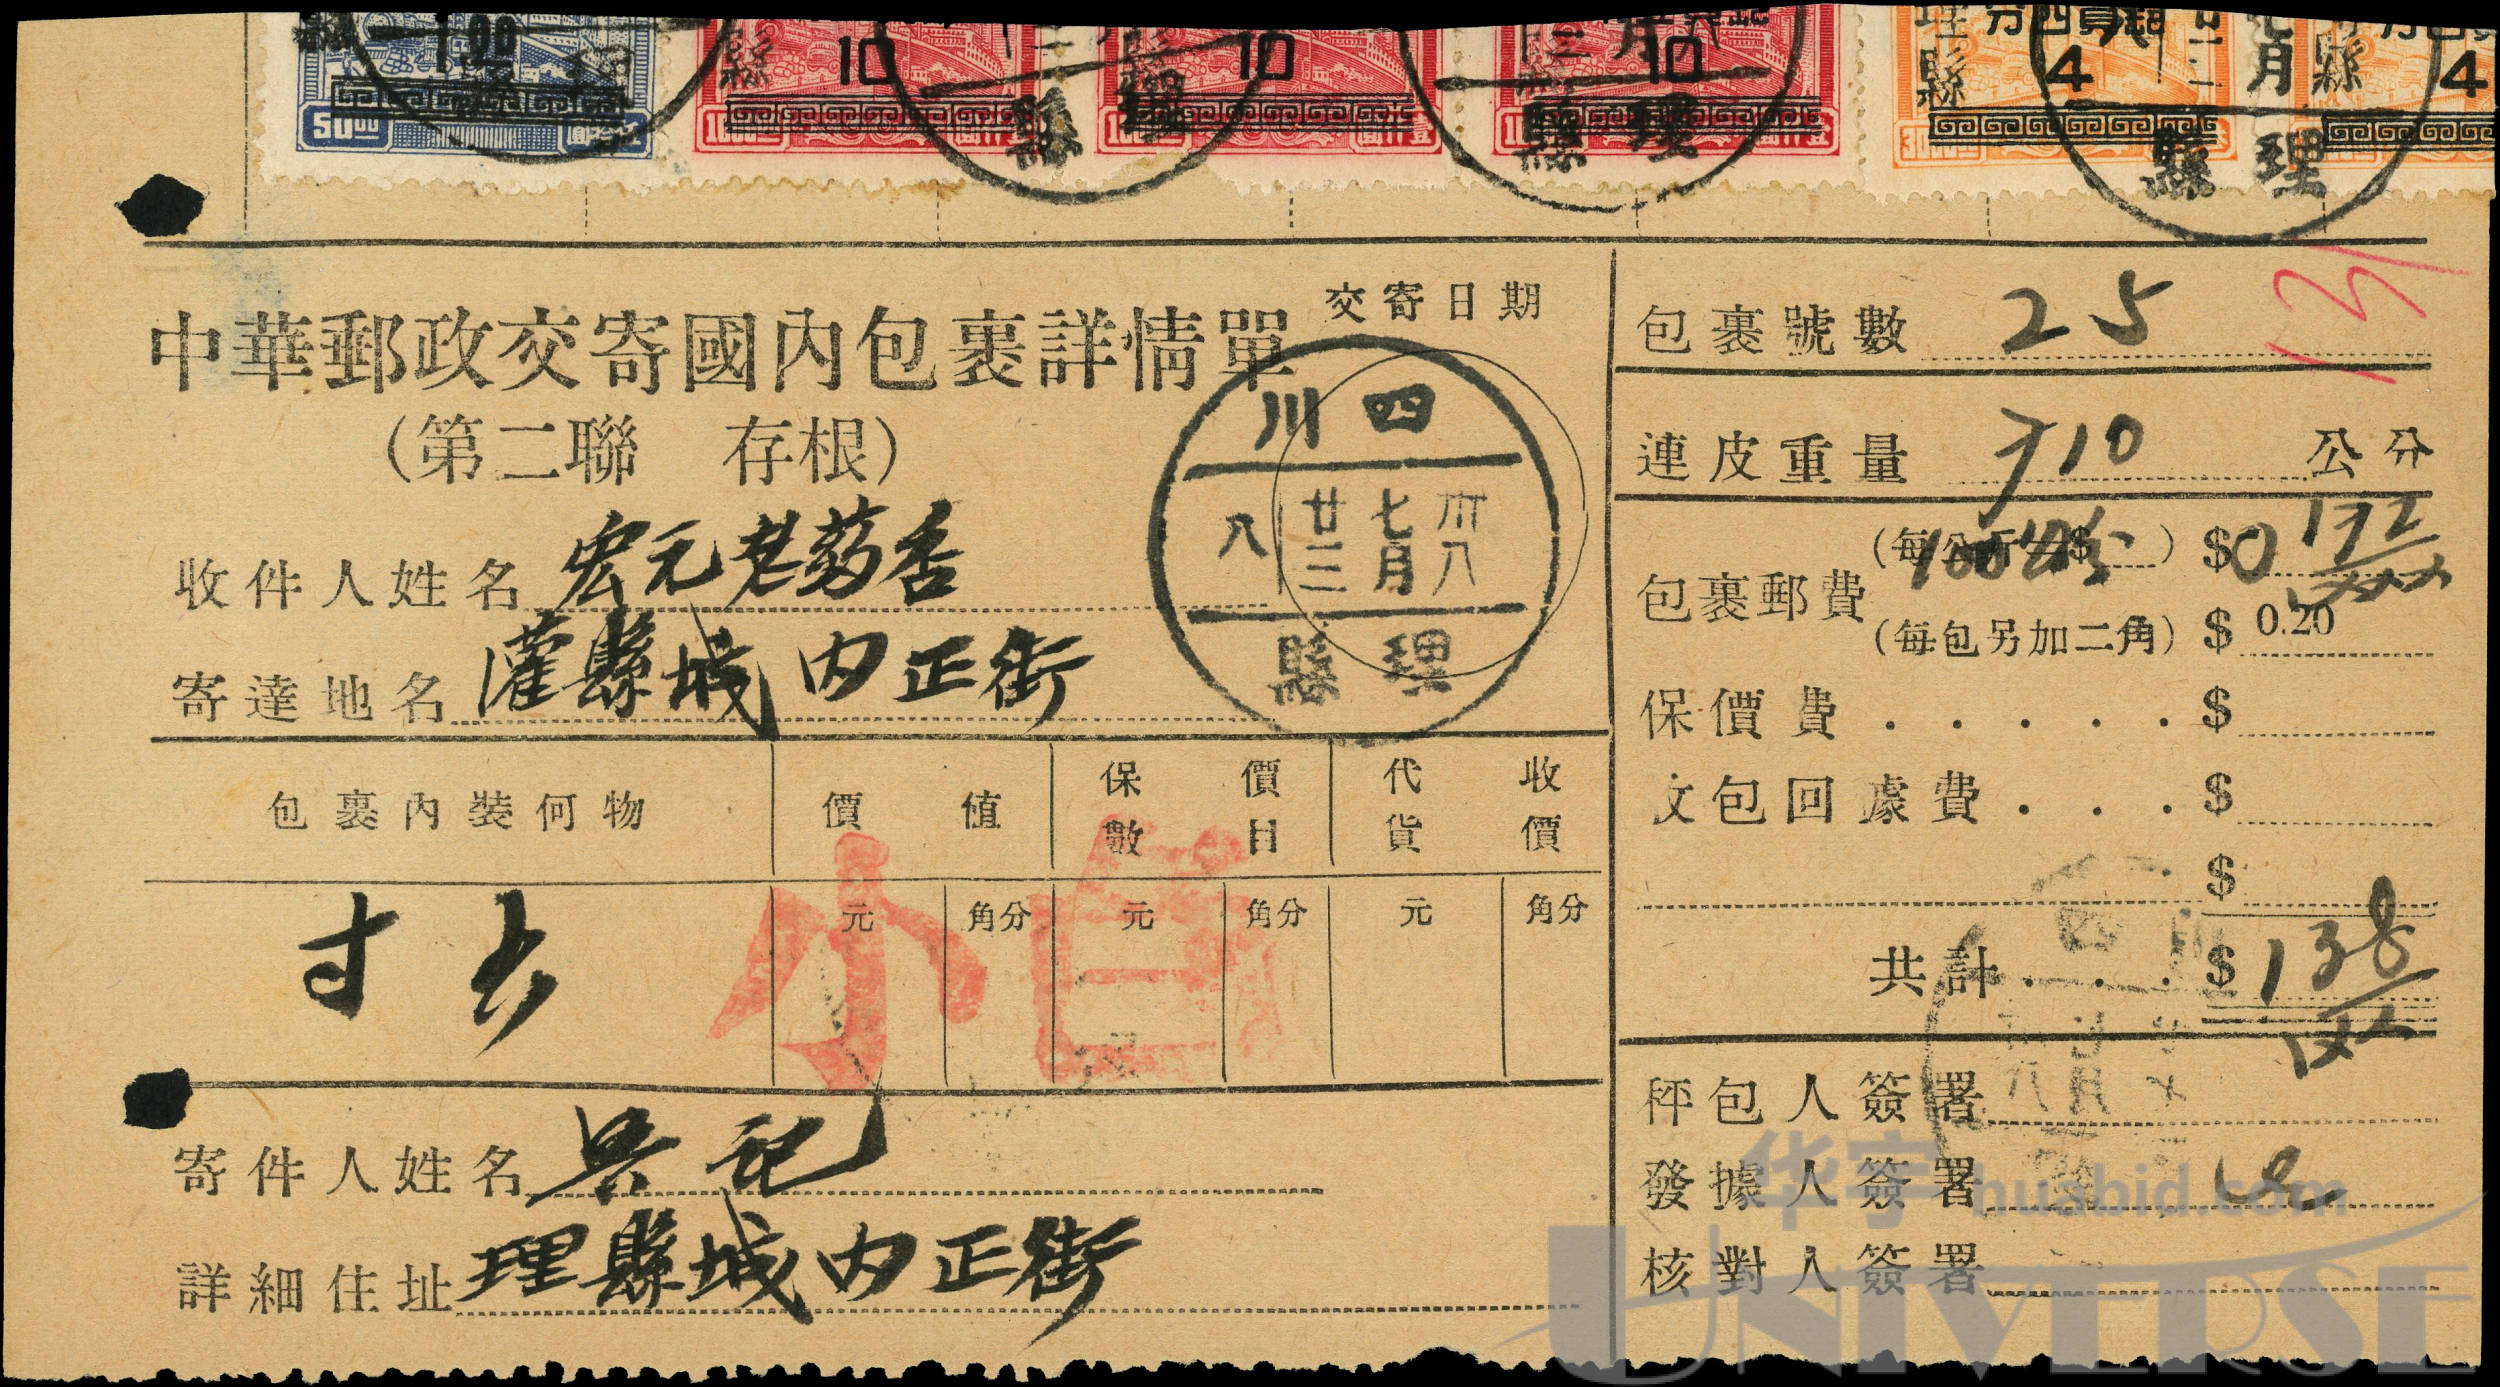 1.00
10
10
10
分四資郵
4
4
50.00
圓拾伍
縣理
縣理
縣理
交寄日期
中華郵政交寄國內包裹詳情單
(第二聯 存根)
四川
卅八
七月
廿三
八
理縣
收件人姓名
寄達地名 灌縣城內正街
包裹內裝何物
價值
保價數目
代收貨價
元 角分 元 角分 元 角分
小包
寄件人姓名 吳記
詳細住址 理縣城內正街
包裹號數 25
連皮重量 710 公分
包裹郵費
(每公斤 $ ) $
(每包另加二角) $ 0.20
保價費 . . . . . $
文包回據費 . . . $
$
共計 . . . $ 138
秤包人簽署
發據人簽署
核對人簽署
华宇 huabid.com
UNIVERSE